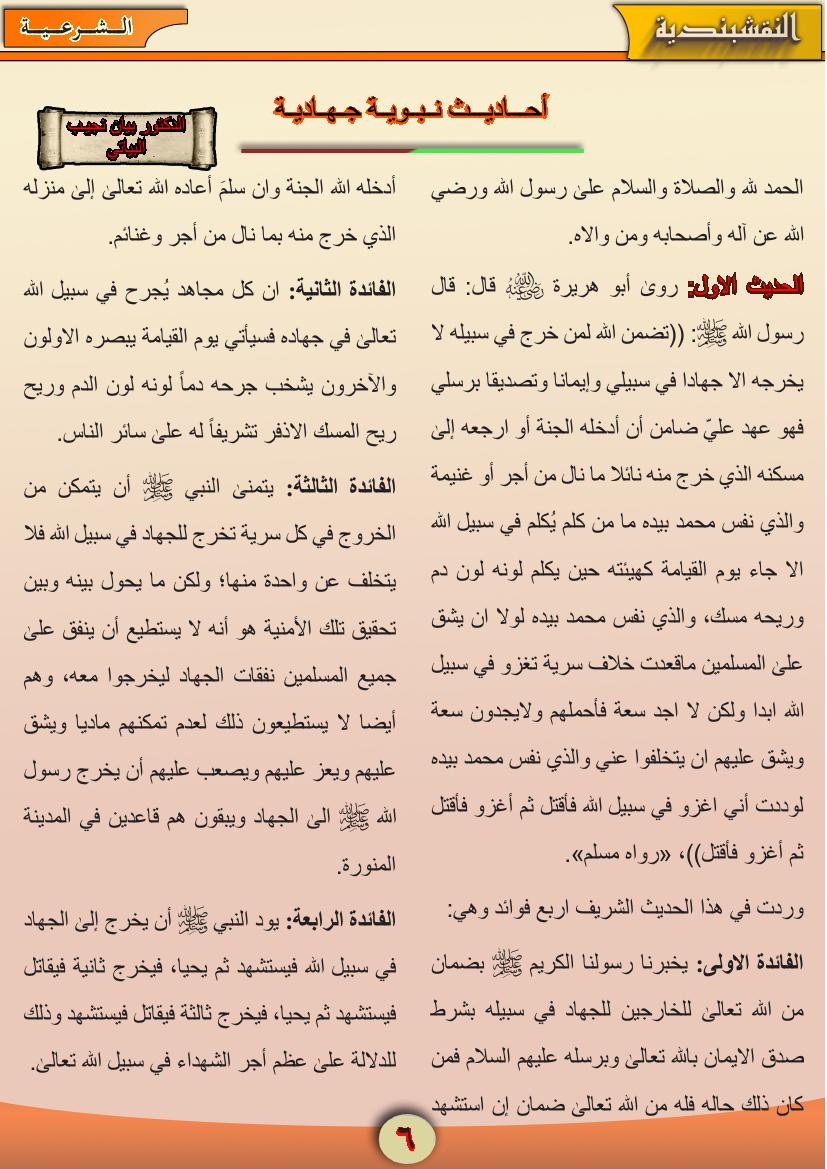 الشرعية
النقشبندية
أحاديث نبوية جهادية
الدكتور بيان نجيب
البياتي
الحمد لله والصلاة والسلام علىٰ رسول الله ورضي
الله عن آله وأصحابه ومن والاه.
الحديث الاول: روىٰ أبو هريرة رضي الله عنه قال: قال
رسول الله ﷺ: ((تضمن الله لمن خرج في سبيله لا
يخرجه الا جهادا في سبيلي وإيمانا وتصديقا برسلي
فهو عهد عليّ ضامن أن أدخله الجنة أو ارجعه إلىٰ
مسكنه الذي خرج منه نائلا ما نال من أجر أو غنيمة
والذي نفس محمد بيده ما من كلم يُكلم في سبيل الله
الا جاء يوم القيامة كهيئته حين يكلم لونه لون دم
وريحه مسك، والذي نفس محمد بيده لولا ان يشق
علىٰ المسلمين ماقعدت خلاف سرية تغزو في سبيل
الله ابدا ولكن لا اجد سعة فأحملهم ولايجدون سعة
ويشق عليهم ان يتخلفوا عني والذي نفس محمد بيده
لوددت أني اغزو في سبيل الله فأقتل ثم أغزو فأقتل
ثم أغزو فأقتل))، «رواه مسلم».
وردت في هذا الحديث الشريف اربع فوائد وهي:
الفائدة الاولى: يخبرنا رسولنا الكريم ﷺ بضمان
من الله تعالىٰ للخارجين للجهاد في سبيله بشرط
صدق الايمان بالله تعالىٰ وبرسله عليهم السلام فمن
كان ذلك حاله فله من الله تعالىٰ ضمان إن استشهد
أدخله الله الجنة وان سلمَ أعاده الله تعالىٰ إلىٰ منزله
الذي خرج منه بما نال من أجر وغنائم.
الفائدة الثانية: ان كل مجاهد يُجرح في سبيل الله
تعالىٰ في جهاده فسيأتي يوم القيامة يبصره الاولون
والآخرون يشخب جرحه دماً لونه لون الدم وريح
ريح المسك الاذفر تشريفاً له علىٰ سائر الناس.
الفائدة الثالثة: يتمنىٰ النبي ﷺ أن يتمكن من
الخروج في كل سرية تخرج للجهاد في سبيل الله فلا
يتخلف عن واحدة منها؛ ولكن ما يحول بينه وبين
تحقيق تلك الأمنية هو أنه لا يستطيع أن ينفق علىٰ
جميع المسلمين نفقات الجهاد ليخرجوا معه، وهم
أيضا لا يستطيعون ذلك لعدم تمكنهم ماديا ويشق
عليهم ويعز عليهم ويصعب عليهم أن يخرج رسول
الله ﷺ الىٰ الجهاد ويبقون هم قاعدين في المدينة
المنورة.
الفائدة الرابعة: يود النبي ﷺ أن يخرج إلىٰ الجهاد
في سبيل الله فيستشهد ثم يحيا، فيخرج ثانية فيقاتل
فيستشهد ثم يحيا، فيخرج ثالثة فيقاتل فيستشهد وذلك
للدلالة علىٰ عظم أجر الشهداء في سبيل الله تعالىٰ.
٦